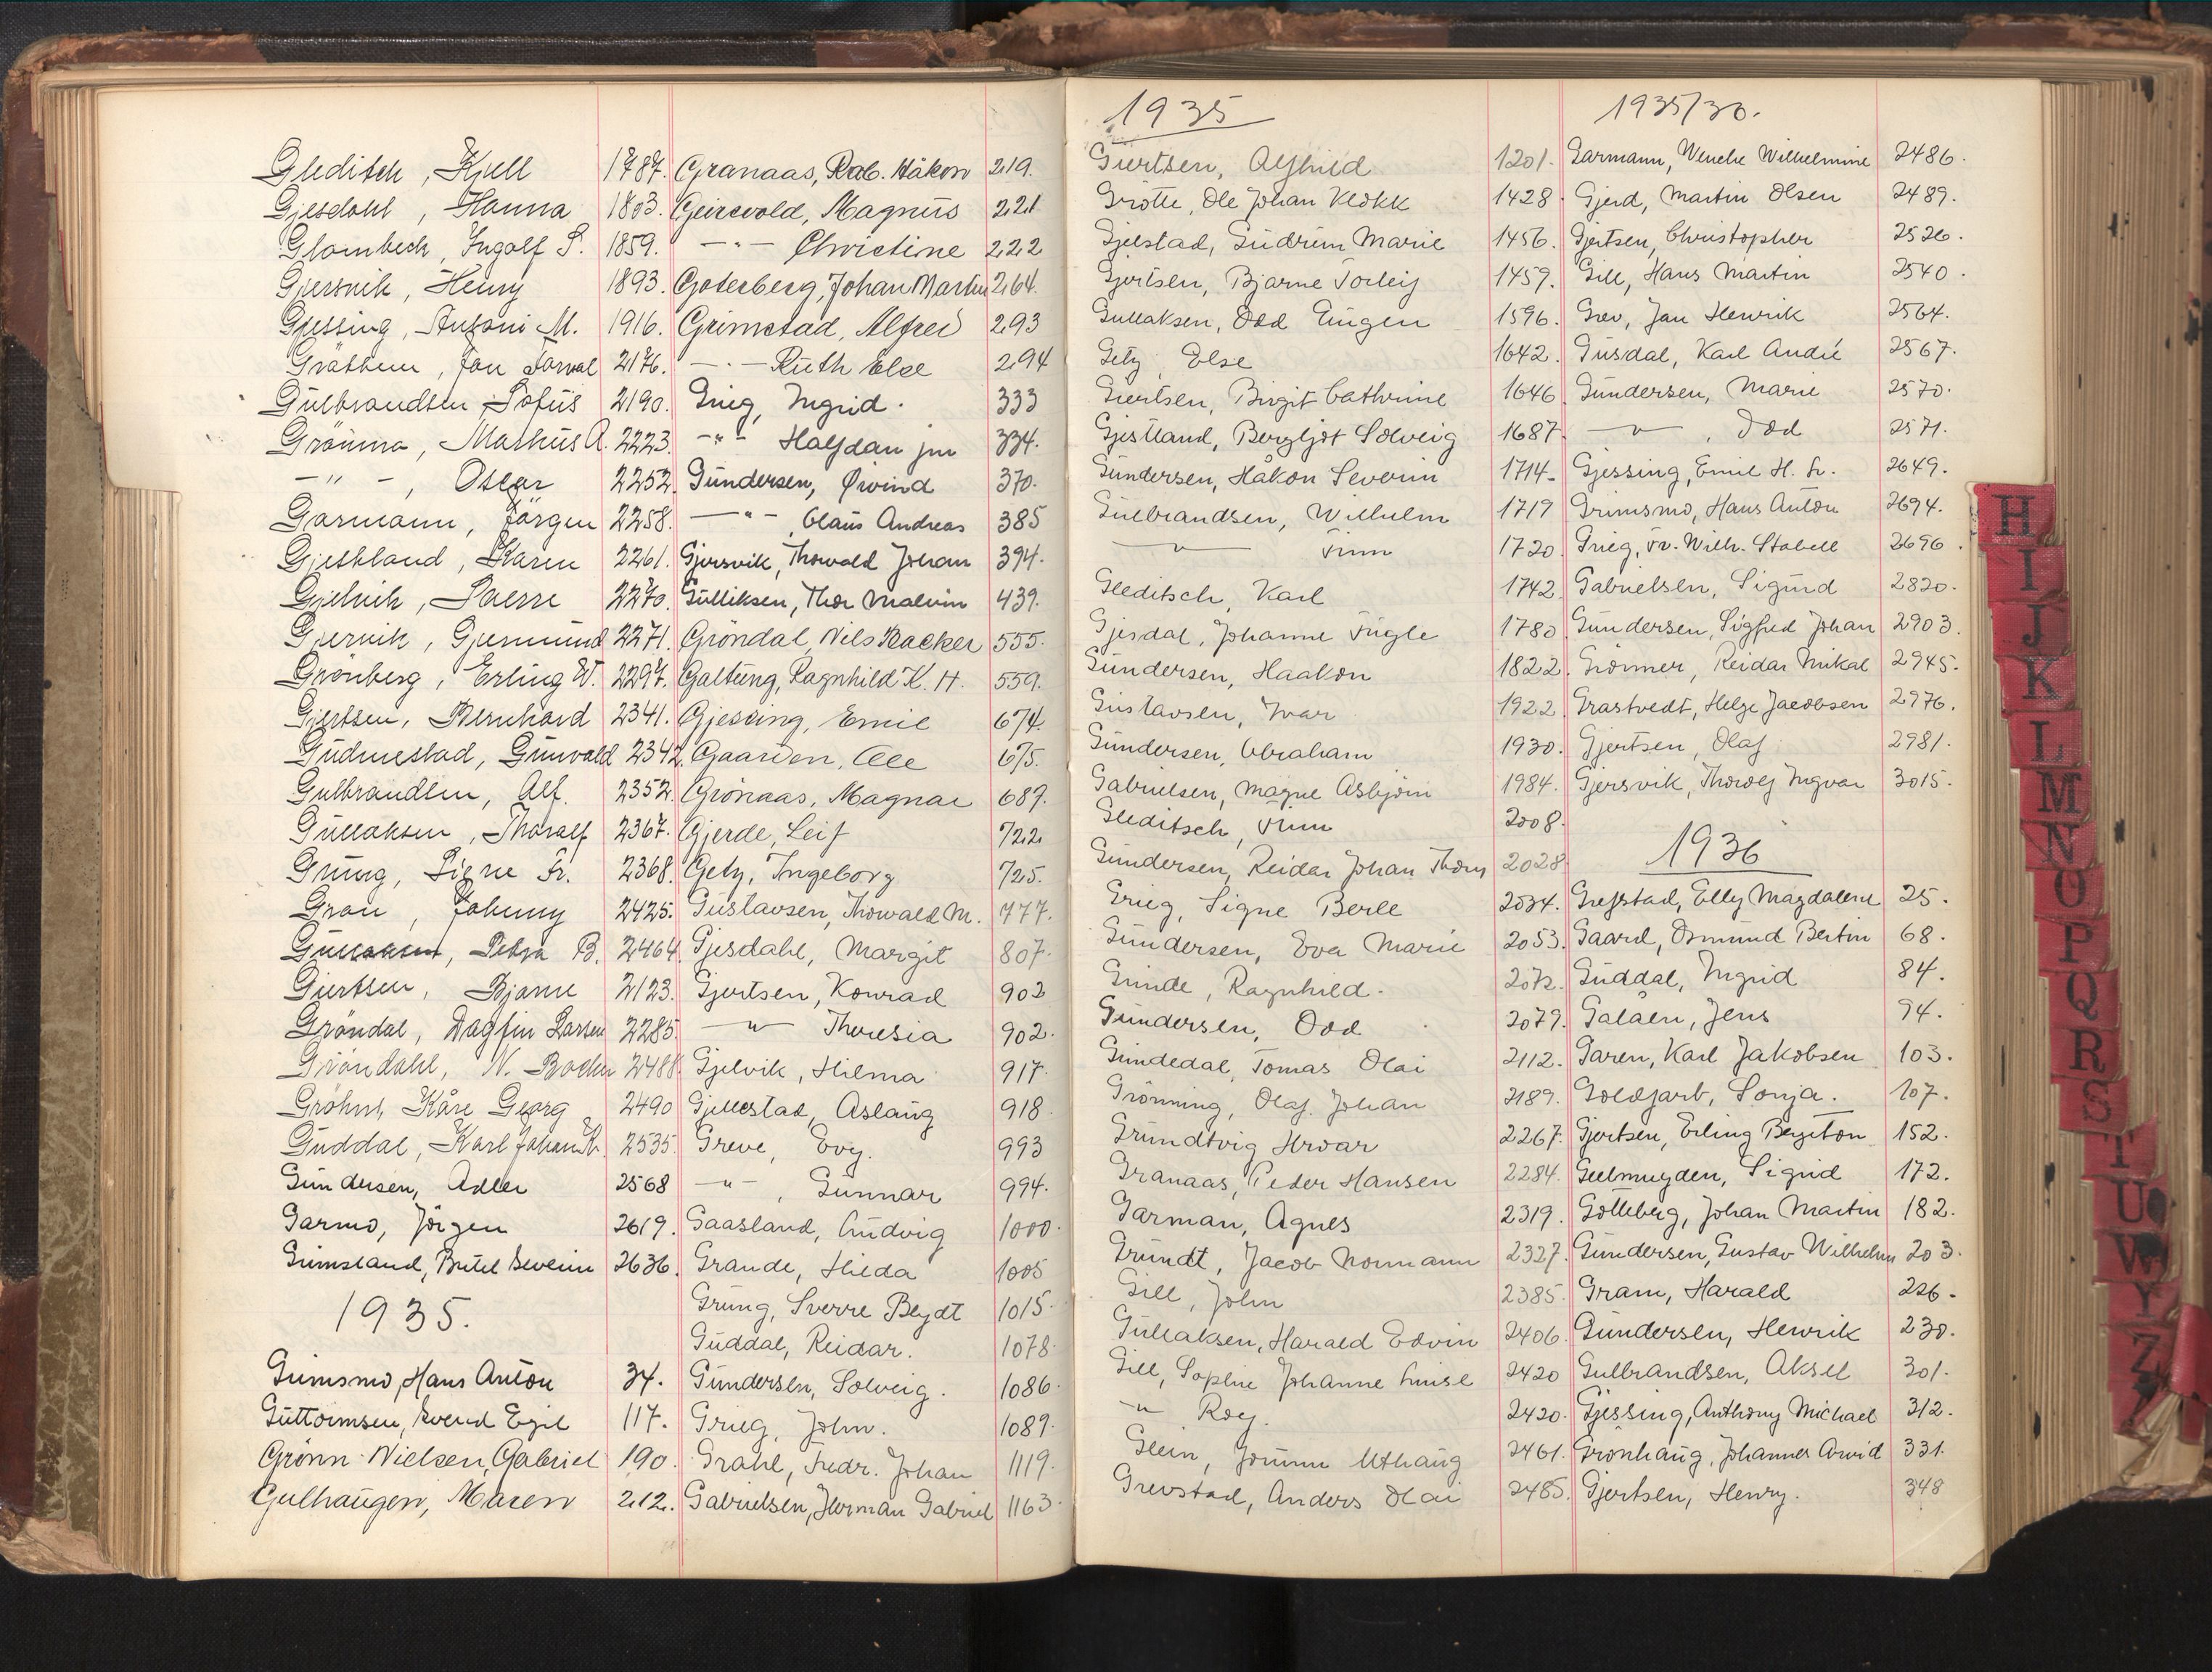 Gleditsch, Kjell 1787.
Gjesdahl, Hanna 1803.
Glambech, Ingolf S. 1859.
Gjersvik, Henry 1893.
Gjessing, Antoni M. 1916.
Gräthen, Jon 2176.
Gulbrandsen, Sofus 2190.
Grönner, Markus A. 2223.
—"—, Oscar 2252.
Garmann, Jörgen 2258.
Gjestland, Karen 2261.
Gjelvik, Sverre 2270.
Gjervik, Gjermund 2271.
Grönberg, Erling W. 2297.
Gjertsen, Bernhard 2341.
Gudmestad, Gunvald 2342.
Gulbrandsen, Alf. 2352.
Gullaksen, Thoralf 2367.
Grung, Signe Fr. 2368.
Gran, Johnny 2425.
Gullaksen, Petra B. 2464.
Giertsen, Bjarne 2123.
Gröndal, Dagfin Larsen 2285.
Gröndahl, N. Backer 2488.
Gröhn, Kåre Georg 2490
Guddal, Karl Johan K. 2535.
Gundersen, Adler 2568
Garmo, Jörgen 2619.
Grimsland, Bertel Severin 2636.
1935.
Grimsmo, Hans Anton 34.
Guttormsen, Svend Egil 117.
Grönn-Nielsen, Gabriel 190.
Gulhaugen, Maren 212.
Granaas, Rab. Håkon 219.
Geirsvold, Magnus 221
—"— Christine 222
Goterberg, Johan Martin 264.
Grimstad, Alfred 293
—"— Ruth Else 294
Grieg, Ingrid. 333
—"— Halfdan jun 334.
Gundersen, Øivind 370.
—"—, Claus Andreas 385
Gjersvik, Thorvald Johan 394.
Gulliksen, Thor Malvin 439.
Gröndal, Nils Backer 555.
Galtung, Ragnhild K. H. 559.
Gjessing, Emil 674.
Gaarden, Ole 675.
Grönaas, Magnar 689.
Gjerde, Leif 722
Getz, Ingeborg 725.
Gustavsen, Thorvald M. 777.
Gjesdahl, Margit 807.
Gjertsen, Konrad 902
—"— Theresia 902.
Gjelvik, Hilma 917.
Gjellestad, Aslaug 918
Greve, Evy. 993
—"—, Gunnar 994.
Gaasland, Ludvig 1000.
Grande, Hilda 1005
Grung, Sverre Blydt 1015.
Guddal, Reidar. 1078
Gundersen, Solveig. 1086.
Grieg, John. 1089.
Grahl, Fredr. Johan 1119.
Gabrielsen, Herman Gabriel 1163.
1935
Giertsen, Alfhild 1201.
Grötte, Ole Johan Klokk 1428
Gjelstad, Gudrun Marie 1456.
Gjertsen, Bjarne Torleif 1459.
Gullaksen, Odd Eugen 1596.
Getz, Else 1642.
Giertsen, Birgit Cathrine 1646
Gjestland, Bergljot Solveig 1687
Gundersen, Håkon Severin 1714.
Gulbrandsen, Wilhelm 1719
—"— Finn 1720
Gleditsch, Karl 1742
Gjesdal, Johanne Fugle 1780
Gundersen, Haakon 1822.
Gustavsen, Ivar 1922
Gundersen, Abraham 1930.
Gabrielsen, Magne Asbjörn 1984.
Gleditsch, Finn 2008.
Gundersen, Reidar Johan Thom 2028
Grieg, Signe Berle 2034.
Gundersen, Eva Marie 2053.
Grinde, Ragnhild. 2072.
Gundersen, Odd 2079.
Grindedal, Tomas Olai 2112.
Grönning, Olaf Johan 2189.
Grundtvig Hroar 2267.
Granaas, Peder Hansen 2284.
Garman, Agnes 2319.
Grundt, Jacob Normann 2327.
Gill, John 2385.
Gullaksen, Harald Edvin 2406.
Gill, Sophie Johanne Luise 2420
—"— Roy. 2420.
Glein, Jörunn Uthaug 2461.
Grevstad, Anders Olai 2485.
1935/36.
Garmann, Wenche Wilhelmine 2486.
Gjerd, Martin Olsen 2489.
Gjertsen, Christopher 2526.
Gill, Hans Martin 2540.
Grev, Jan Henrik 2564.
Gusdal, Karl André 2567.
Gundersen, Marie 2570.
—"—, Odd 2571.
Gjessing, Emil H. Fr. 2649.
Grimsmo, Hans Anton 2694.
Grieg, Fr. Wilh. Stabell 2696.
Gabrielsen, Sigurd 2820.
Gundersen, Sigfred Johan 2903.
Grönner, Reidar Mikal 2945.
Grastvedt, Helge Jacobsen 2976.
Gjertsen, Olaf 2981.
Gjersvik, Thorolf Ingvar 3015.
1936
Grefstad, Elly Magdalene 25.
Gaard, Osmund Bertin 68.
Guddal, Ingrid 84.
Galåen, Jens 94.
Garen, Karl Jakobsen 103.
Goldfarb, Sonja. 107.
Gjertsen, Erling Bergiton 152.
Geelmuyden, Sigrid 172.
Gotteberg, Johan Martin 182.
Gundersen, Gustav Wilhelm 203.
Gram, Harald 226.
Gundersen, Henrik 230.
Gulbrandsen, Aksel 301.
Gjessing, Anthony Michael 312.
Grönhaug, Johannes Arvid 331.
Gjertsen, Henry. 348
H
I
J
K
L
M
N
O
P
Q
R
S
T
U
W
Y
Z